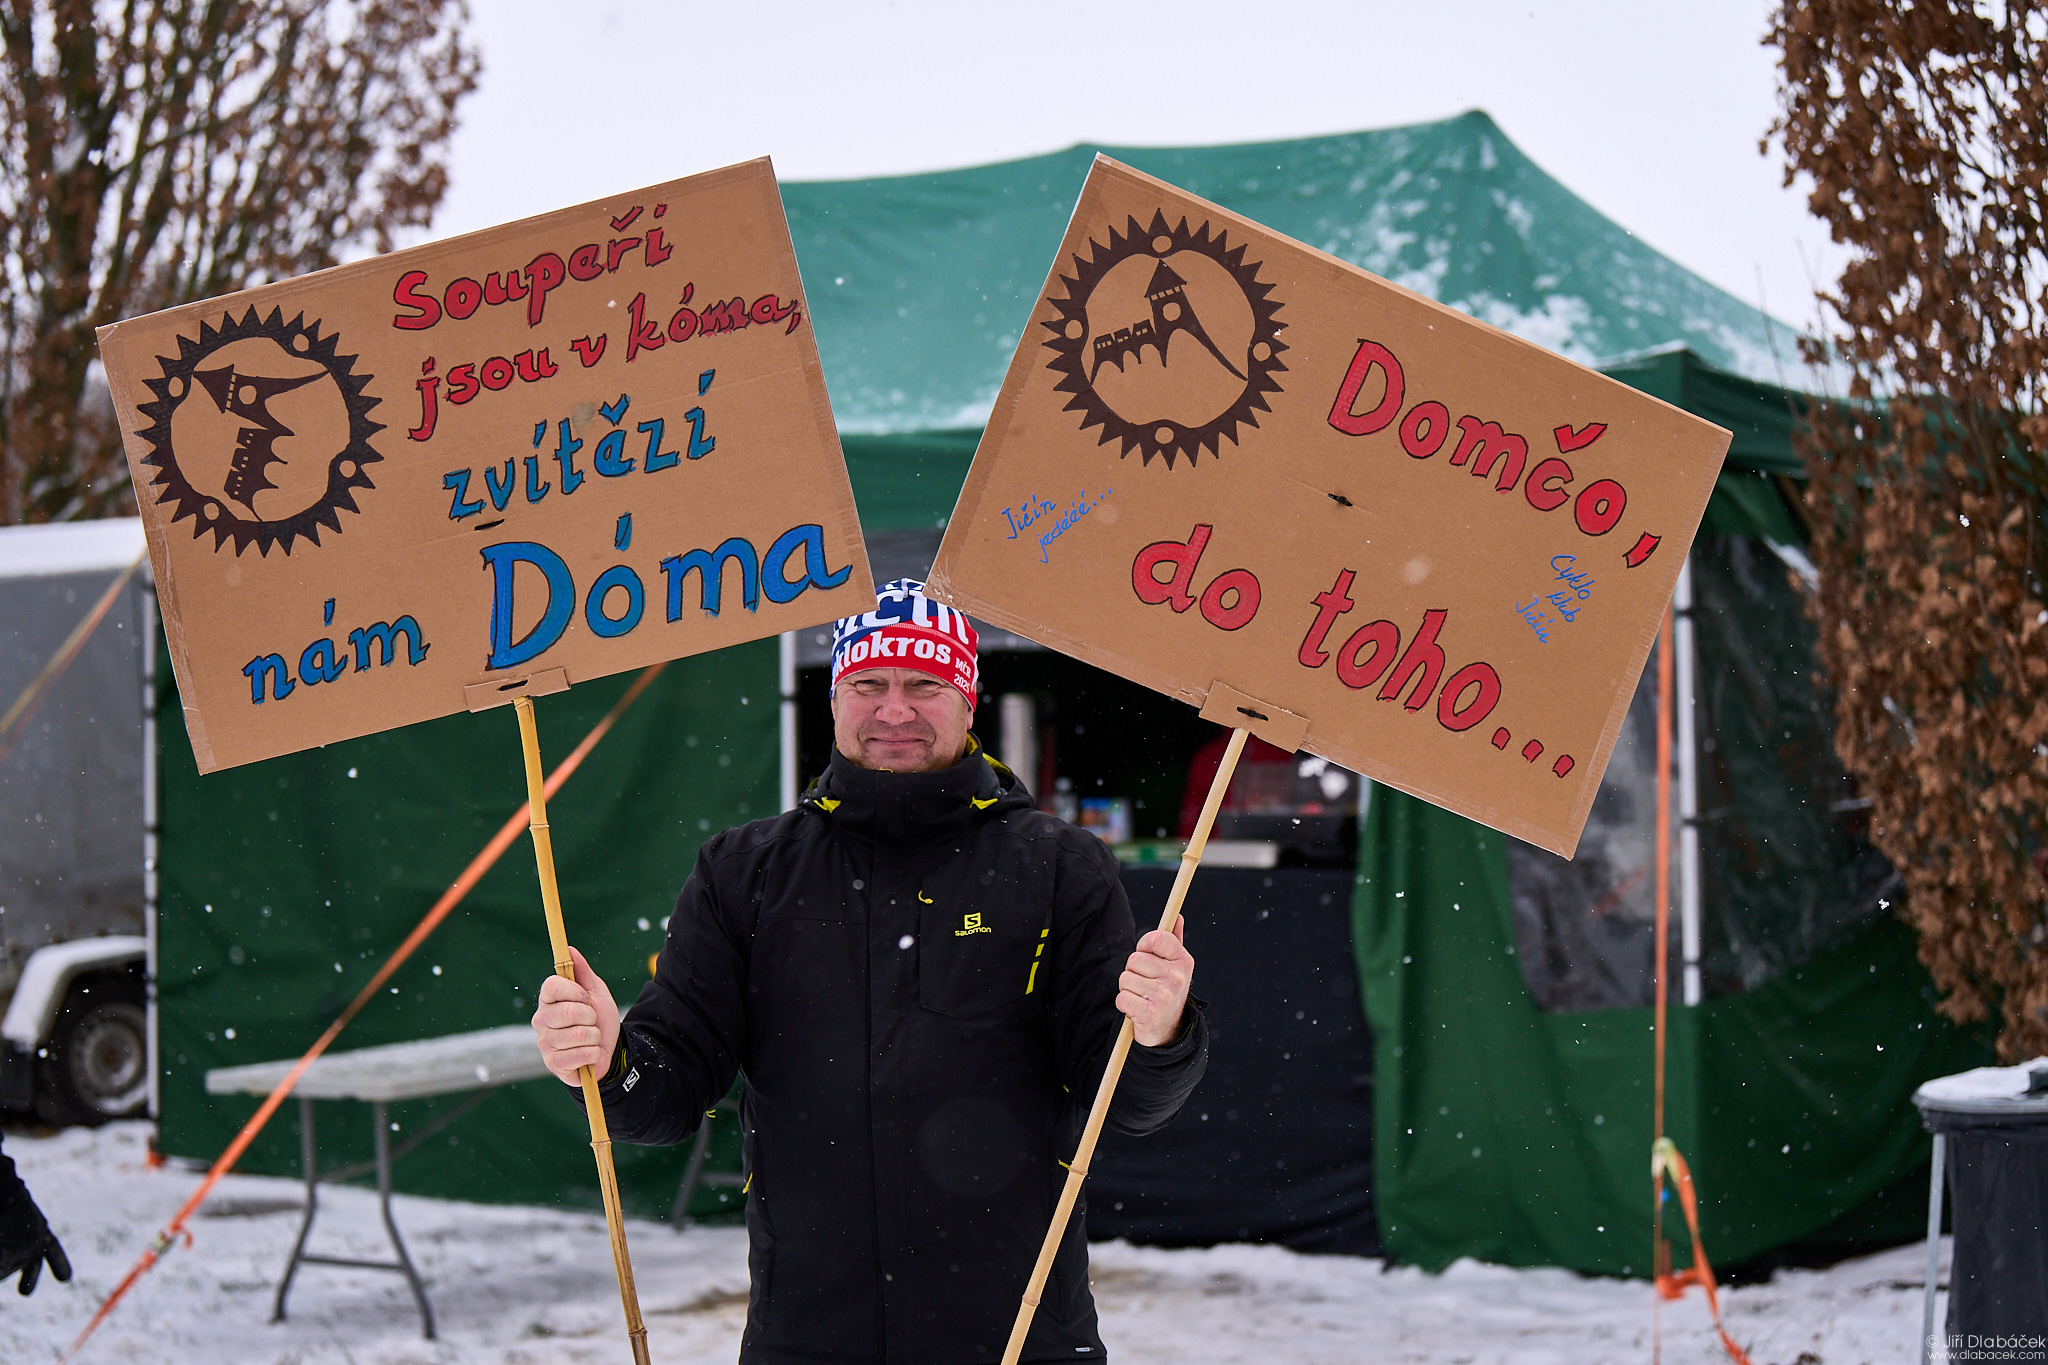 Soupeři
jsou v kóma,
zvítězí
nám Dóma
Domčo,
do toho...
Jičín
jedééé...
Cyklo
klub
Jičín
klokros
MČR
2025
SALOMON
© Jiří Dlabáček
www.dlabacek.com